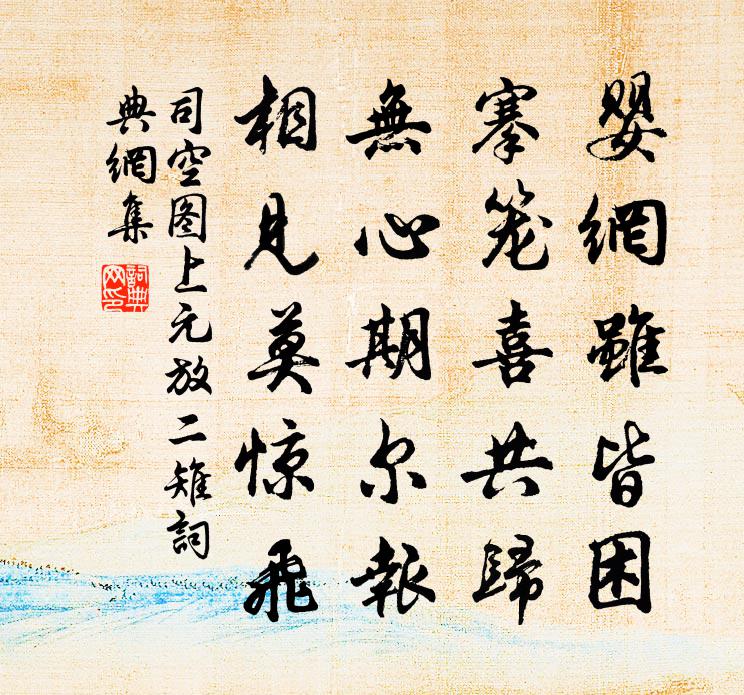 嬰網雖皆困
搴笼喜共歸
無心期尔報
相見莫惊飛
司空图上元放二雉詞
典網集
詞典網印